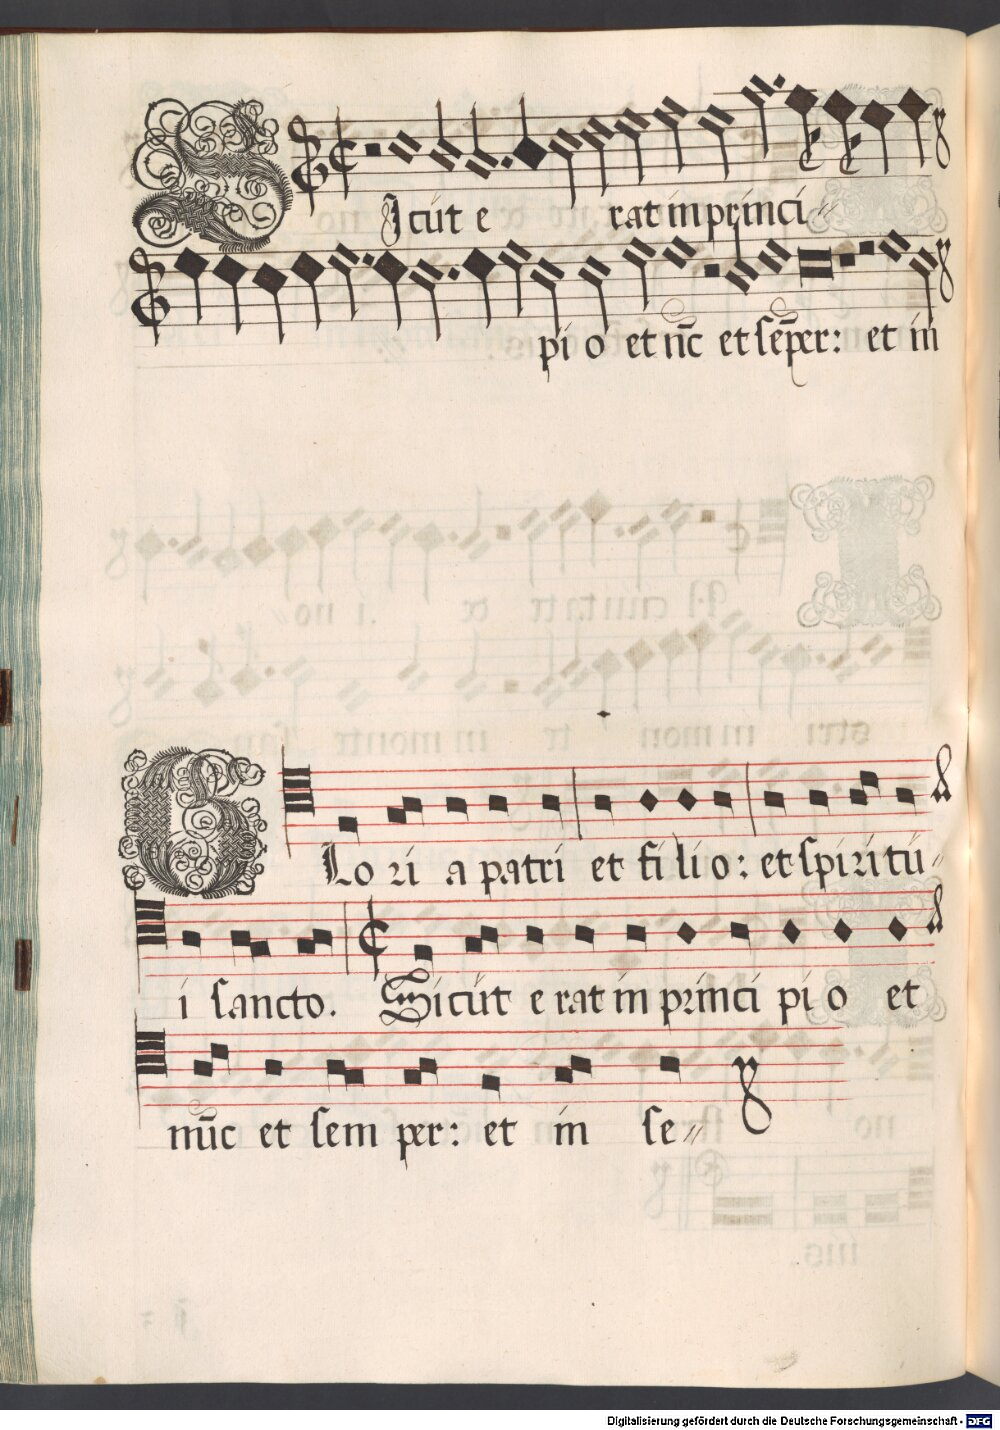 Sicut e rat in princi〃
pi o et nūc et sēper: et in
Glo ri a patri et fi li o: et spiritu〃
i sancto. Sicut e rat in princi pi o et
nūc et sem per: et in se〃
Digitalisierung gefördert durch die Deutsche Forschungsgemeinschaft - DFG